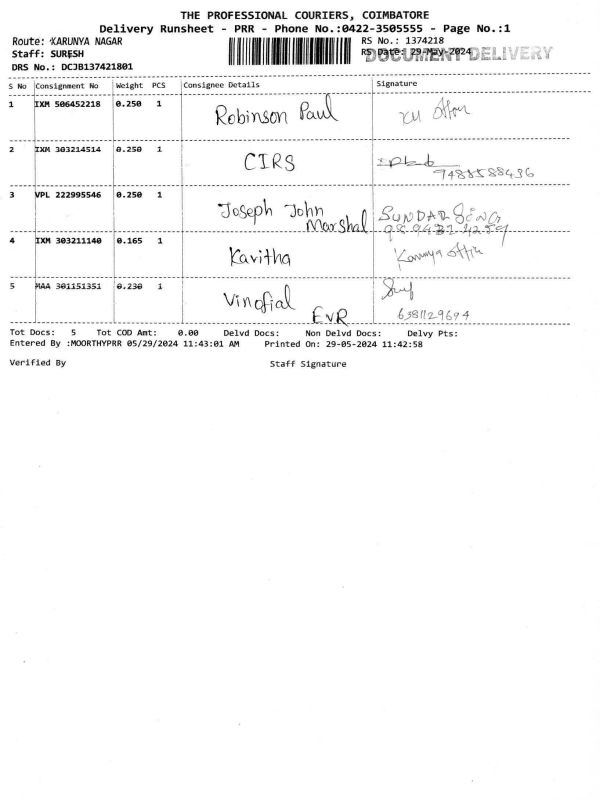 THE PROFESSIONAL COURIERS, COIMBATORE
Delivery Runsheet - PRR - Phone No.:0422-3505555 - Page No.:1
Route: KARUNYA NAGAR RS No.: 1374218
Staff: SURESH RS Date: 29-May-2024 DOCUMENT DELIVERY
DRS No.: DCJB137421801
S No Consignment No Weight PCS Consignee Details Signature
1 IXM 506452218 0.250 1 Robinson Paul
2 IXM 303214514 0.250 1 CIRS
7488588436
3 VPL 222995546 0.250 1 Joseph John
Marshal SUNDAR
4 IXM 303211140 0.165 1 Kavitha Karunya
5 MAA 301151351 0.230 1 Vinofial
EVR 6381129694
Tot Docs: 5 Tot COD Amt: 0.00 Delvd Docs: Non Delvd Docs: Delvy Pts:
Entered By :MOORTHYPRR 05/29/2024 11:43:01 AM Printed On: 29-05-2024 11:42:58
Verified By Staff Signature